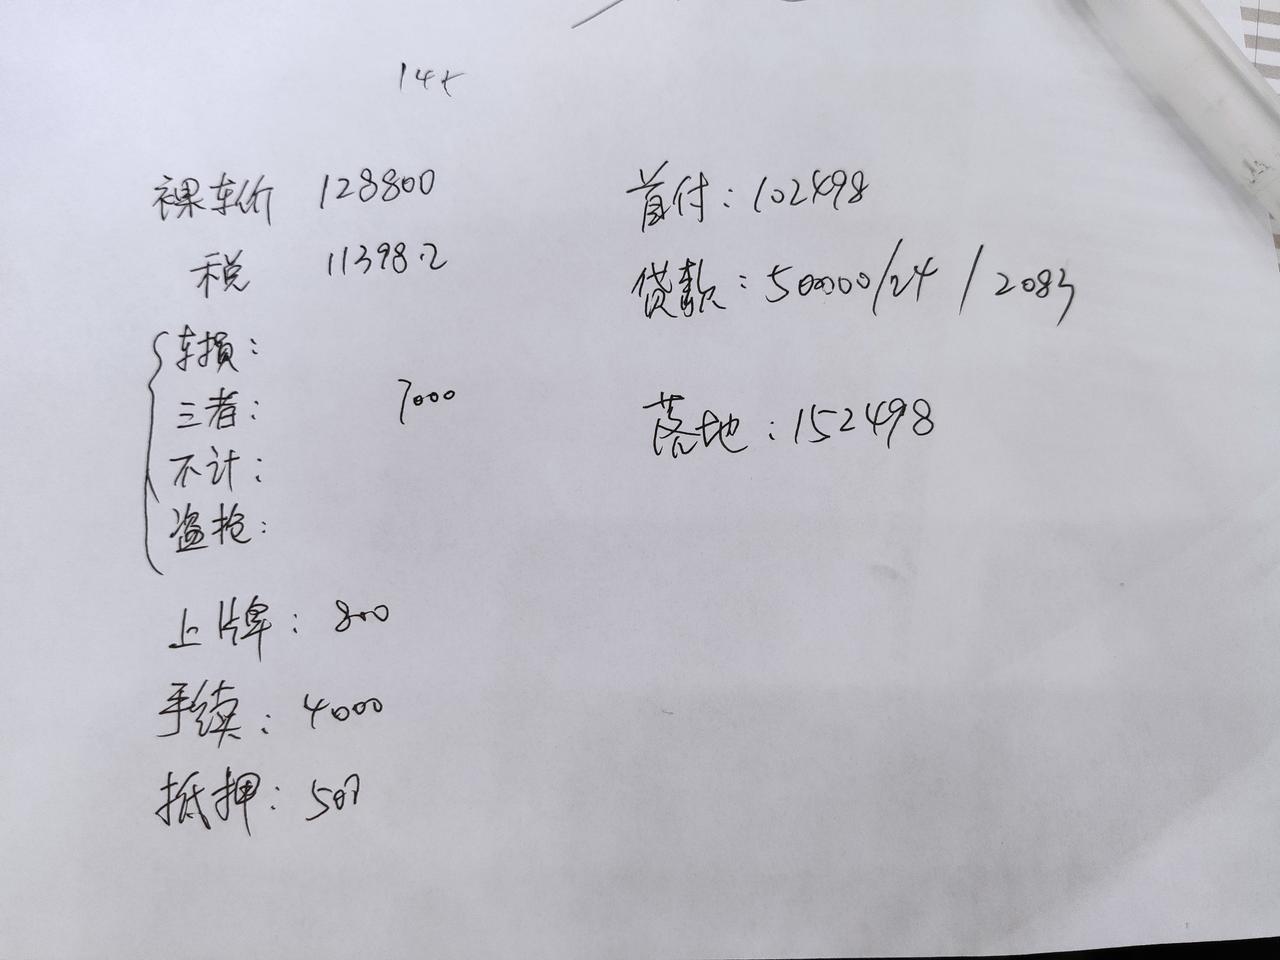 14t
裸车价 128800
税 11398.2
车损：
三者： 7000
不计：
盗抢：
上牌：800
手续：4000
抵押：500
首付：102498
贷款：50000/24/2083
落地：152498